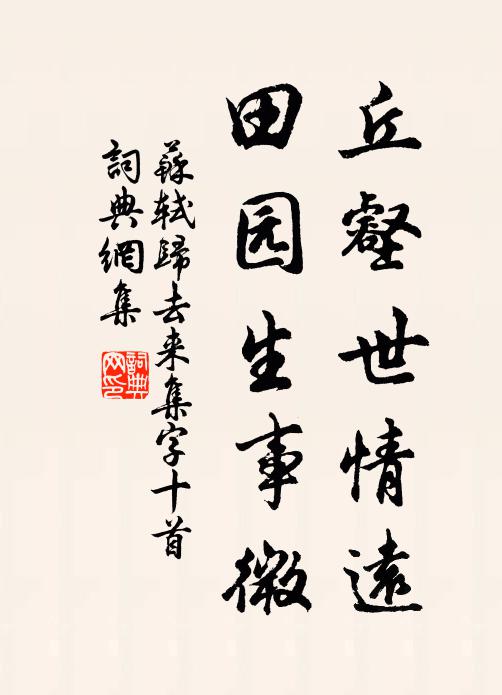 丘壑世情遠
田园生事微
蘇軾歸去来集字十首
詞典網集
詞典網印